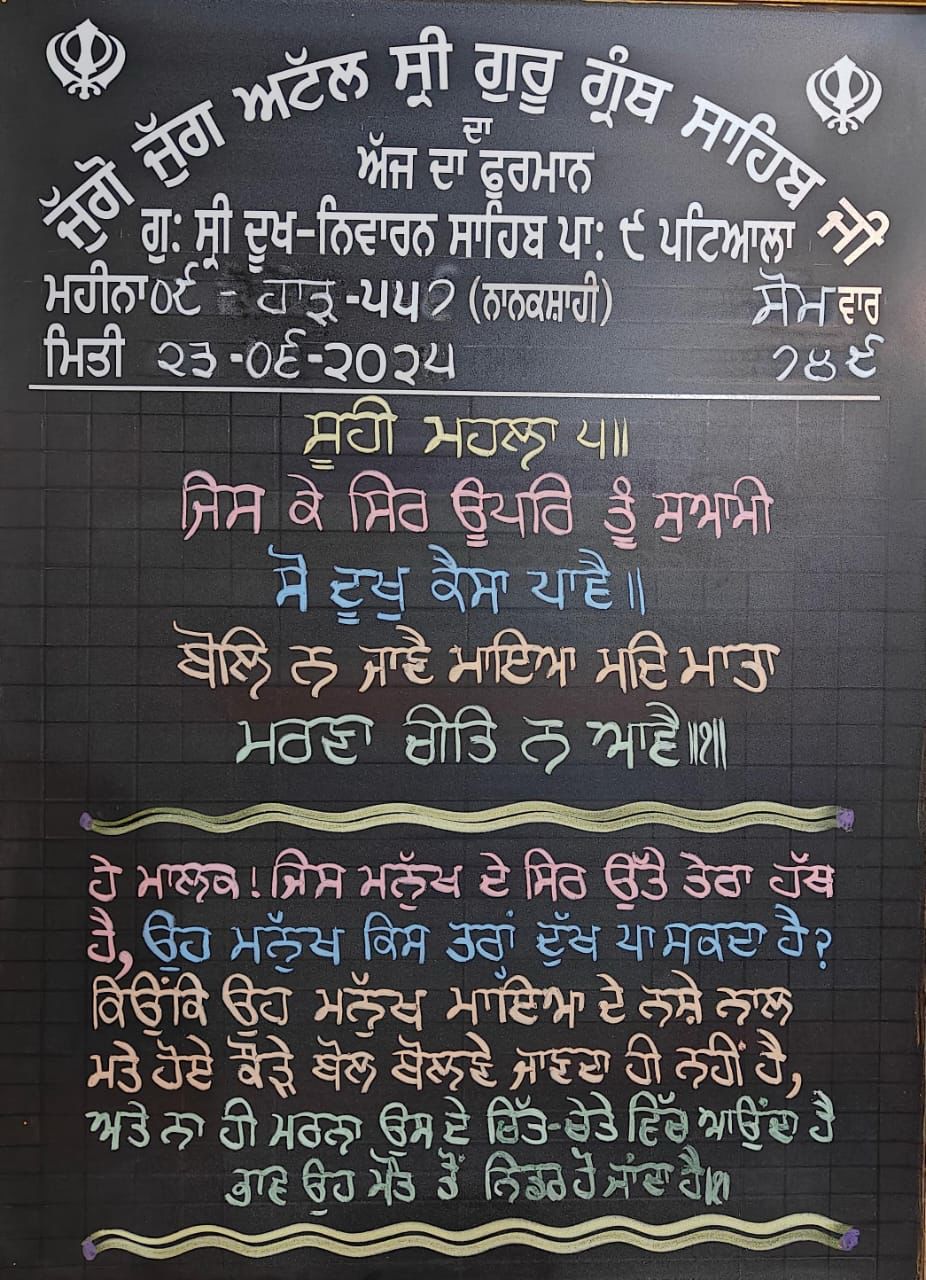 ਜੁੱਗੋ ਜੁੱਗ ਅਟੱਲ ਸ੍ਰੀ ਗੁਰੂ ਗ੍ਰੰਥ ਸਾਹਿਬ ਜੀ
ਦਾ
ਅੱਜ ਦਾ ਫੁਰਮਾਨ
ਗੁ: ਸ੍ਰੀ ਦੂਖ-ਨਿਵਾਰਨ ਸਾਹਿਬ ਪਾ: ੯ ਪਟਿਆਲਾ
ਮਹੀਨਾ ੦੯ - ਹਾੜ -੫੫੭ (ਨਾਨਕਸ਼ਾਹੀ) ਸੋਮ ਵਾਰ
ਮਿਤੀ ੨੩ -੦੬-੨੦੨੫ ੭੪੯
ਸੂਹੀ ਮਹਲਾ ੫॥
ਜਿਸ ਕੇ ਸਿਰ ਊਪਰਿ ਤੂੰ ਸੁਆਮੀ
ਸੋ ਦੂਖੁ ਕੈਸਾ ਪਾਵੈ॥
ਬੋਲਿ ਨ ਜਾਵੈ ਮਾਇਆ ਮਦਿ ਮਾਤਾ
ਮਰਣਾ ਚੀਤਿ ਨ ਆਵੈ॥੧॥
ਹੇ ਮਾਲਕ! ਜਿਸ ਮਨੁੱਖ ਦੇ ਸਿਰ ਉੱਤੇ ਤੇਰਾ ਹੱਥ
ਹੈ, ਉਹ ਮਨੁੱਖ ਕਿਸ ਤਰਾਂ ਦੁੱਖ ਪਾ ਸਕਦਾ ਹੈ?
ਕਿਉਂਕਿ ਉਹ ਮਨੁੱਖ ਮਾਇਆ ਦੇ ਨਸ਼ੇ ਨਾਲ
ਮਤੇ ਹੋਏ ਕੌੜੇ ਬੋਲ ਬੋਲਣੇ ਜਾਣਦਾ ਹੀ ਨਹੀਂ ਹੈ,
ਅਤੇ ਨਾ ਹੀ ਮਰਨਾ ਉਸ ਦੇ ਚਿੱਤ-ਚੇਤੇ ਵਿੱਚ ਆਉਂਦਾ ਹੈ
ਭਾਵ ਉਹ ਮੌਤ ਤੋਂ ਨਿਡਰ ਹੋ ਜਾਂਦਾ ਹੈ।੧।